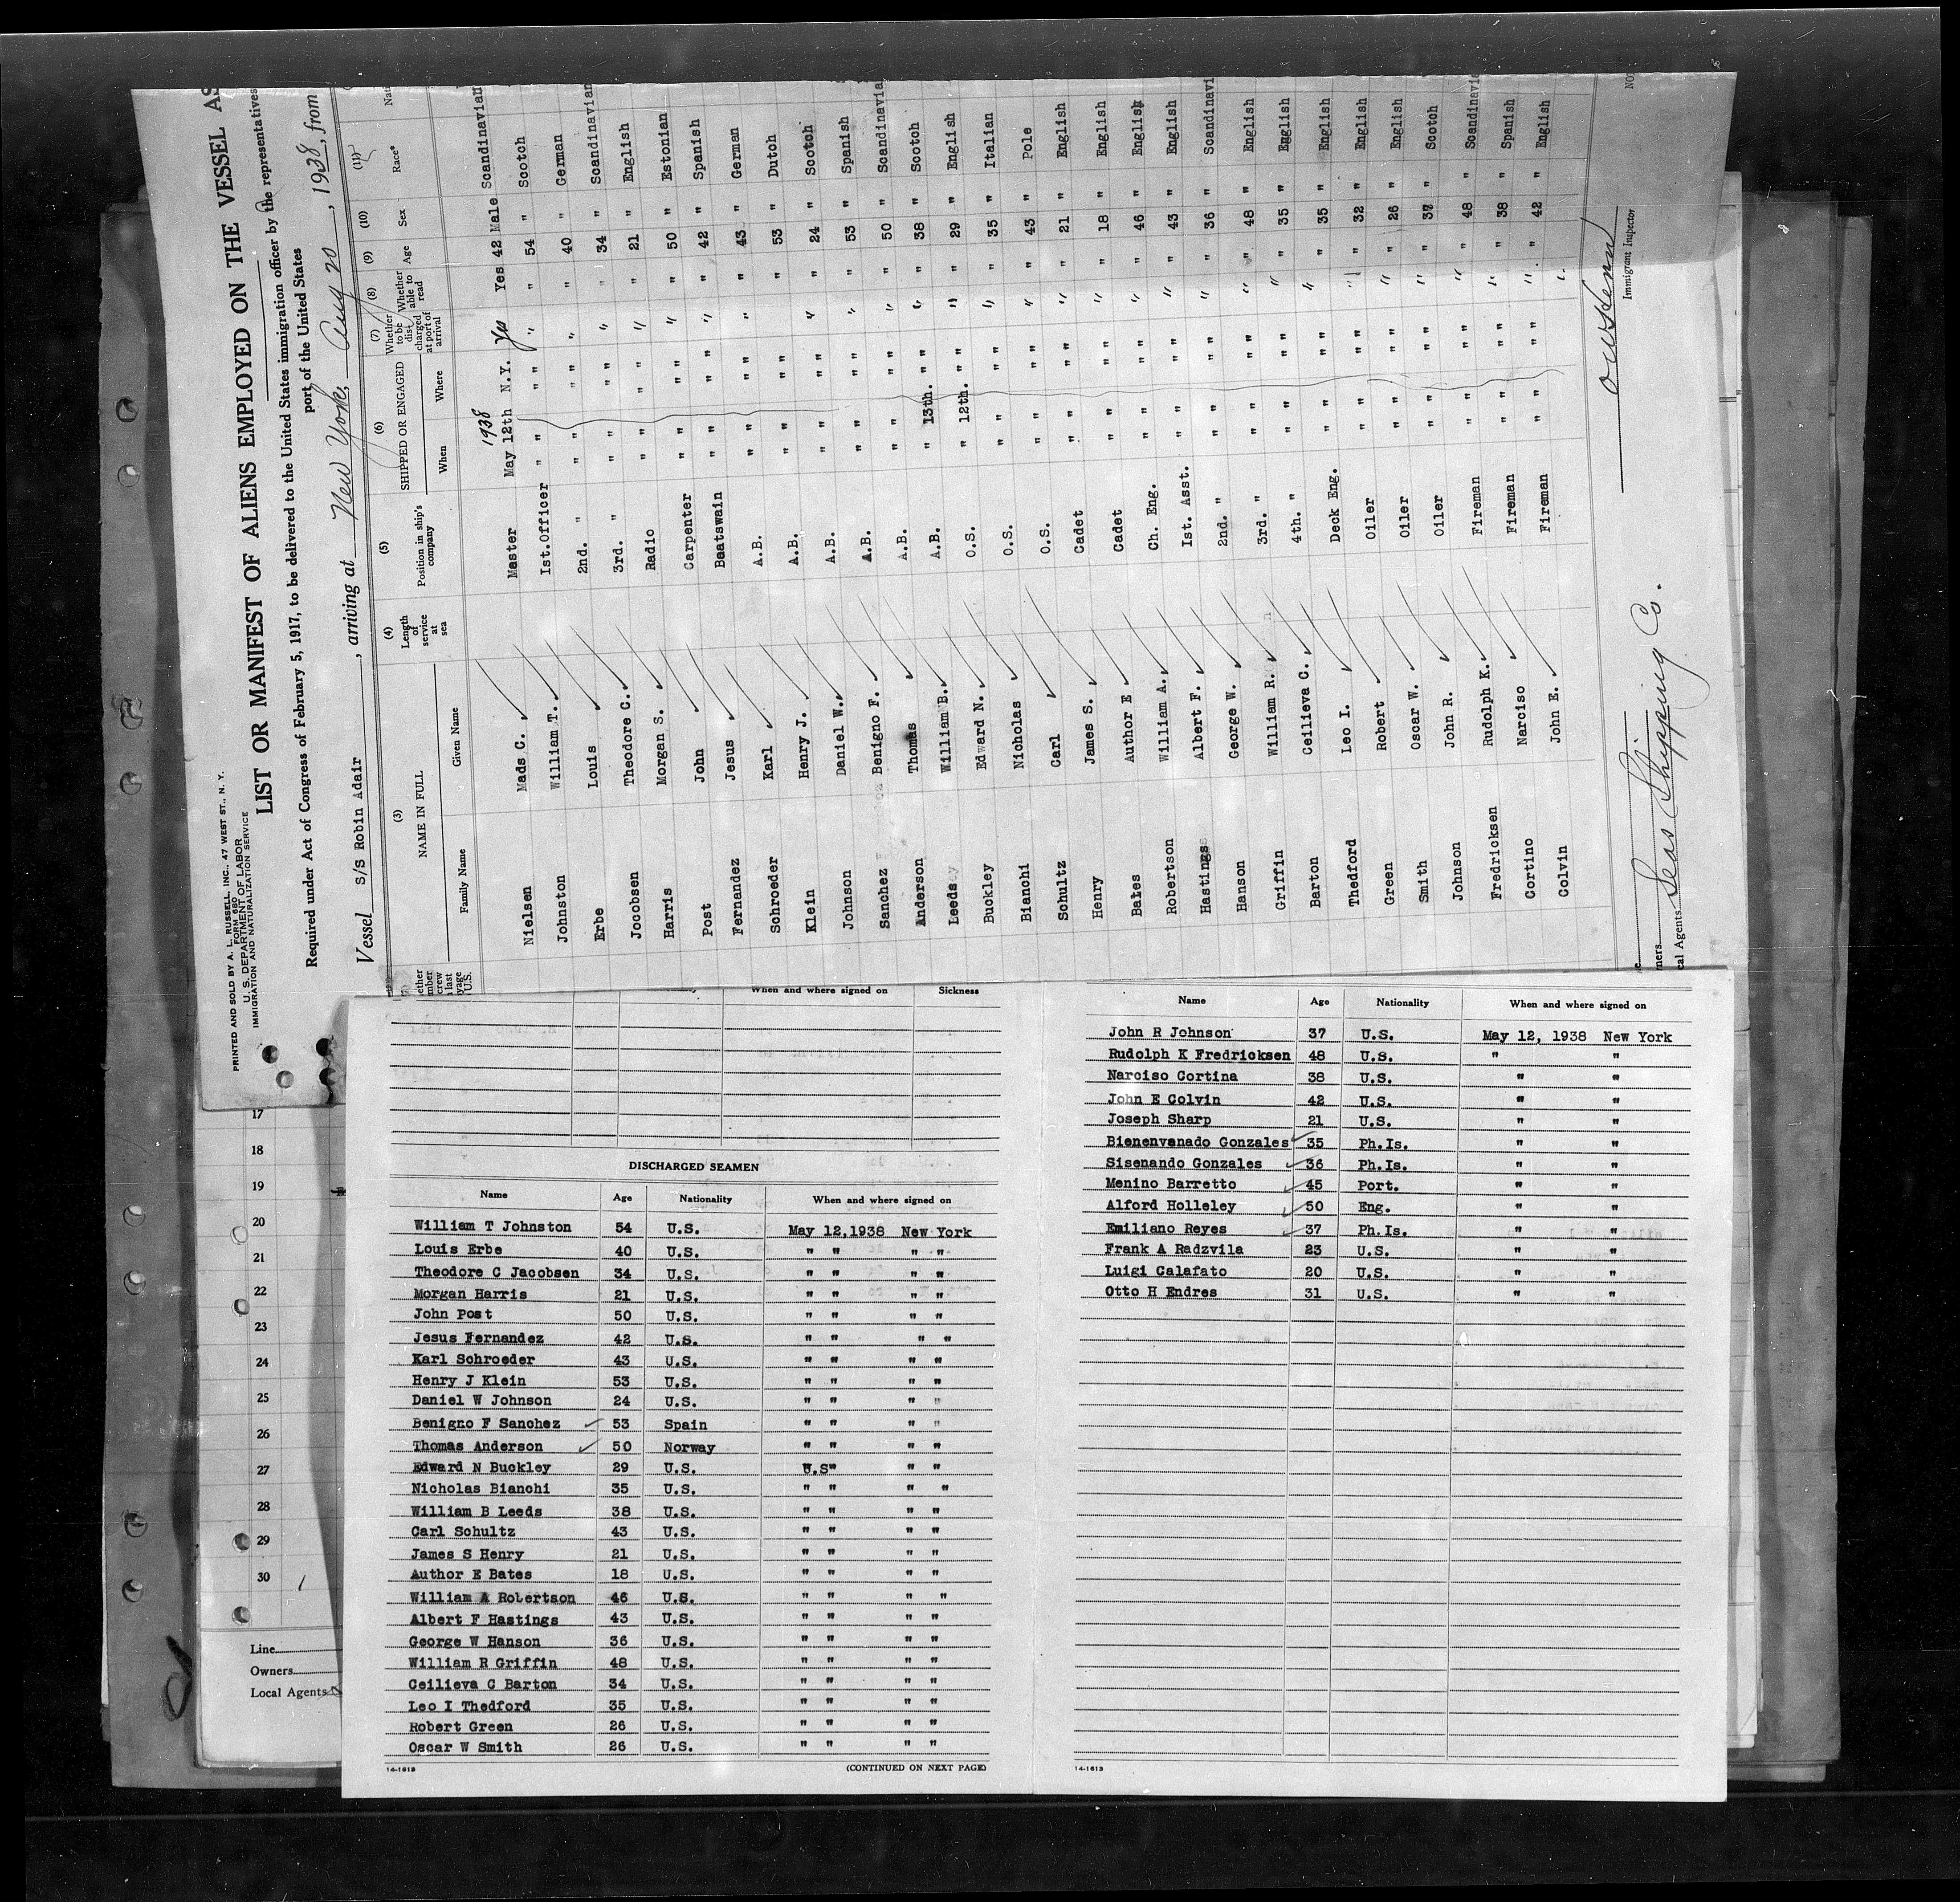 PRINTED AND SOLD BY A. L. RUSSELL, INC., 47 WEST ST., N. Y.
FORM 680
U. S. DEPARTMENT OF LABOR
IMMIGRATION AND NATURALIZATION SERVICE
LIST OR MANIFEST OF ALIENS EMPLOYED ON THE VESSEL AS
Required under Act of Congress of February 5, 1917, to be delivered to the United States immigration officer by the representatives
port of the United States
Vessel S/S Robin Adair, arriving at New York, Aug 20, 1938, from
(3) (4) (5) (6) (7) (8) (9) (10) (11)
NAME IN FULL Length of service at sea Position in ship's company SHIPPED OR ENGAGED Whether to be discharged at port of arrival Whether able to read Age Sex Race*
Family Name Given Name When Where
1938
Nielsen Mads C. Master May 12th N.Y. Yes Yes 42 Male Scandinavian
Johnston William T. 1st.Officer " " " " " " 54 " Scotch
Erbe Louis 2nd. " " " " " " " 40 " German
Jocobsen Theodore C. 3rd. " " " " " " " 34 " Scandinavian
Harris Morgan S. Radio " " " " " " 21 " English
Post John Carpenter " " " " " " 50 " Estonian
Fernandez Jesus Boatswain " " " " " " 42 " Spanish
Schroeder Karl A.B. " " " " " " 43 " German
Klein Henry J. A.B. " " " " " " 53 " Dutch
Johnson Daniel W. A.B. " " " " " " 24 " Scotch
Sanchez Benigno F. A.B. " " " " " " 53 " Spanish
Anderson Thomas A.B. " " " " " " 50 " Scandinavia
Leeds William B. A.B. " 13th. " " " " 38 " Scotch
Buckley Edward N. O.S. " 12th. " " " " 29 " English
Bianchi Nicholas O.S. " " " " " " 35 " Italian
Schultz Carl O.S. " " " " " " 43 " Pole
Henry James S. Cadet " " " " " " 21 " English
Bates Author E Cadet " " " " " " 18 " English
Robertson William A. Ch. Eng. " " " " " " 46 " English
Hastings Albert F. 1st. Asst. " " " " " " 43 " English
Hanson George W. 2nd. " " " " " " " 36 " Scandinavi
Griffin William R. 3rd. " " " " " " " 48 " English
Barton Ceilieva C. 4th. " " " " " " " 35 " English
Thedford Leo I. Deck Eng. " " " " " " 35 " English
Green Robert Oiler " " " " " " 32 " English
Smith Oscar W. Oiler " " " " " " 26 " English
Johnson John R. Oiler " " " " " " 37 " Scotch
Fredricksen Rudolph K. Fireman " " " " " " 48 " Scandinavia
Cortino Narciso Fireman " " " " " " 38 " Spanish
Colvin John E. Fireman " " " " " " 42 " English
Immigrant Inspector
Seas Shipping Co.
17
18
19
20
21
22
23
24
25
26
27
28
29
30
Line
Owners
Local Agents
When and where signed on Sickness
DISCHARGED SEAMEN
Name Age Nationality When and where signed on
William T Johnston 54 U.S. May 12,1938 New York
Louis Erbe 40 U.S. " " " "
Theodore C Jacobsen 34 U.S. " " " "
Morgan Harris 21 U.S. " " " "
John Post 50 U.S. " " " "
Jesus Fernandez 42 U.S. " " " "
Karl Schroeder 43 U.S. " " " "
Henry J Klein 53 U.S. " " " "
Daniel W Johnson 24 U.S. " " " "
Benigno F Sanchez 53 Spain " " " "
Thomas Anderson 50 Norway " " " "
Edward N Buckley 29 U.S. U.S" " "
Nicholas Bianchi 35 U.S. " " " "
William B Leeds 38 U.S. " " " "
Carl Schultz 43 U.S. " " " "
James S Henry 21 U.S. " " " "
Author E Bates 18 U.S. " " " "
William A Robertson 46 U.S. " " " "
Albert F Hastings 43 U.S. " " " "
George W Hanson 36 U.S. " " " "
William R Griffin 48 U.S. " " " "
Ceilieva C Barton 34 U.S. " " " "
Leo I Thedford 35 U.S. " " " "
Robert Green 26 U.S. " " " "
Oscar W Smith 26 U.S. " " " "
14-1613 (CONTINUED ON NEXT PAGE)
Name Age Nationality When and where signed on
John R Johnson 37 U.S. May 12, 1938 New York
Rudolph K Fredricksen 48 U.S. " "
Narciso Cortina 38 U.S. " "
John E Colvin 42 U.S. " "
Joseph Sharp 21 U.S. " "
Bienenvanado Gonzales 35 Ph.Is. " "
Sisenando Gonzales 36 Ph.Is. " "
Menino Barretto 45 Port. " "
Alford Holleley 50 Eng. " "
Emiliano Reyes 37 Ph.Is. " "
Frank A Radzvila 23 U.S. " "
Luigi Calafato 20 U.S. " "
Otto H Endres 31 U.S. " "
14-1613